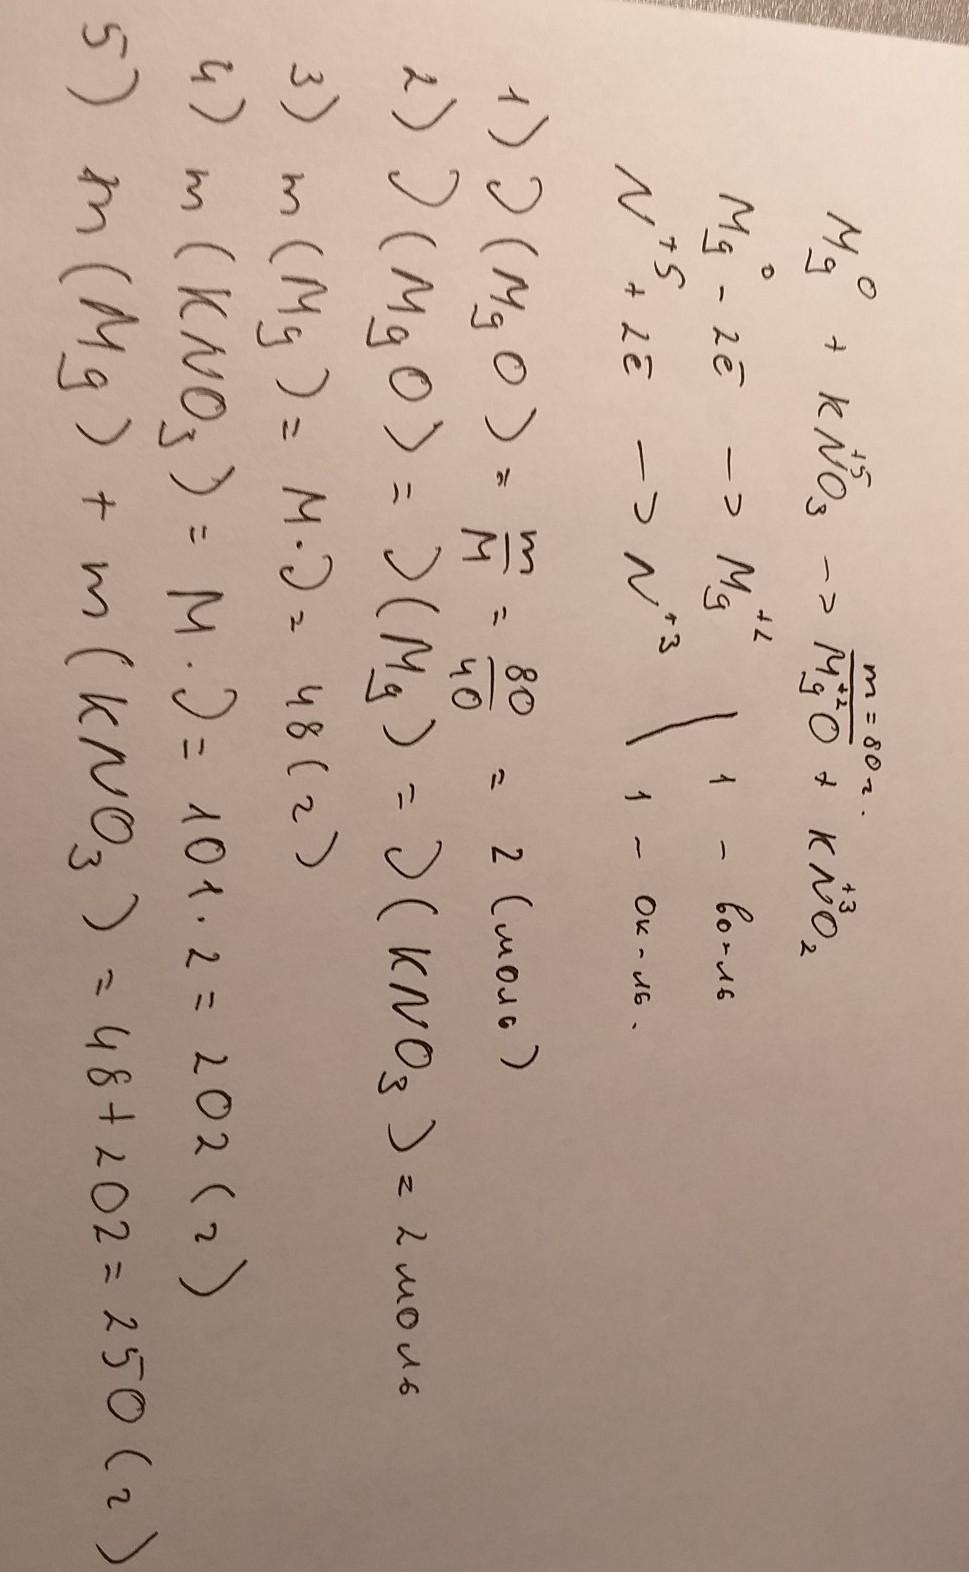 m = 80 г.
Mg⁰ + KN⁺⁵O₃ → Mg⁺²O + KN⁺³O₂
Mg⁰ - 2ē → Mg⁺² | 1 - во-ль
N⁺⁵ + 2ē → N⁺³ | 1 - ок-ль.
1) ν(MgO) = m/M = 80/40 = 2 (моль)
2) ν(MgO) = ν(Mg) = ν(KNO₃) = 2 моль
3) m(Mg) = M·ν = 48 (г)
4) m(KNO₃) = M·ν = 101·2 = 202 (г)
5) m(Mg) + m(KNO₃) = 48 + 202 = 250 (г)